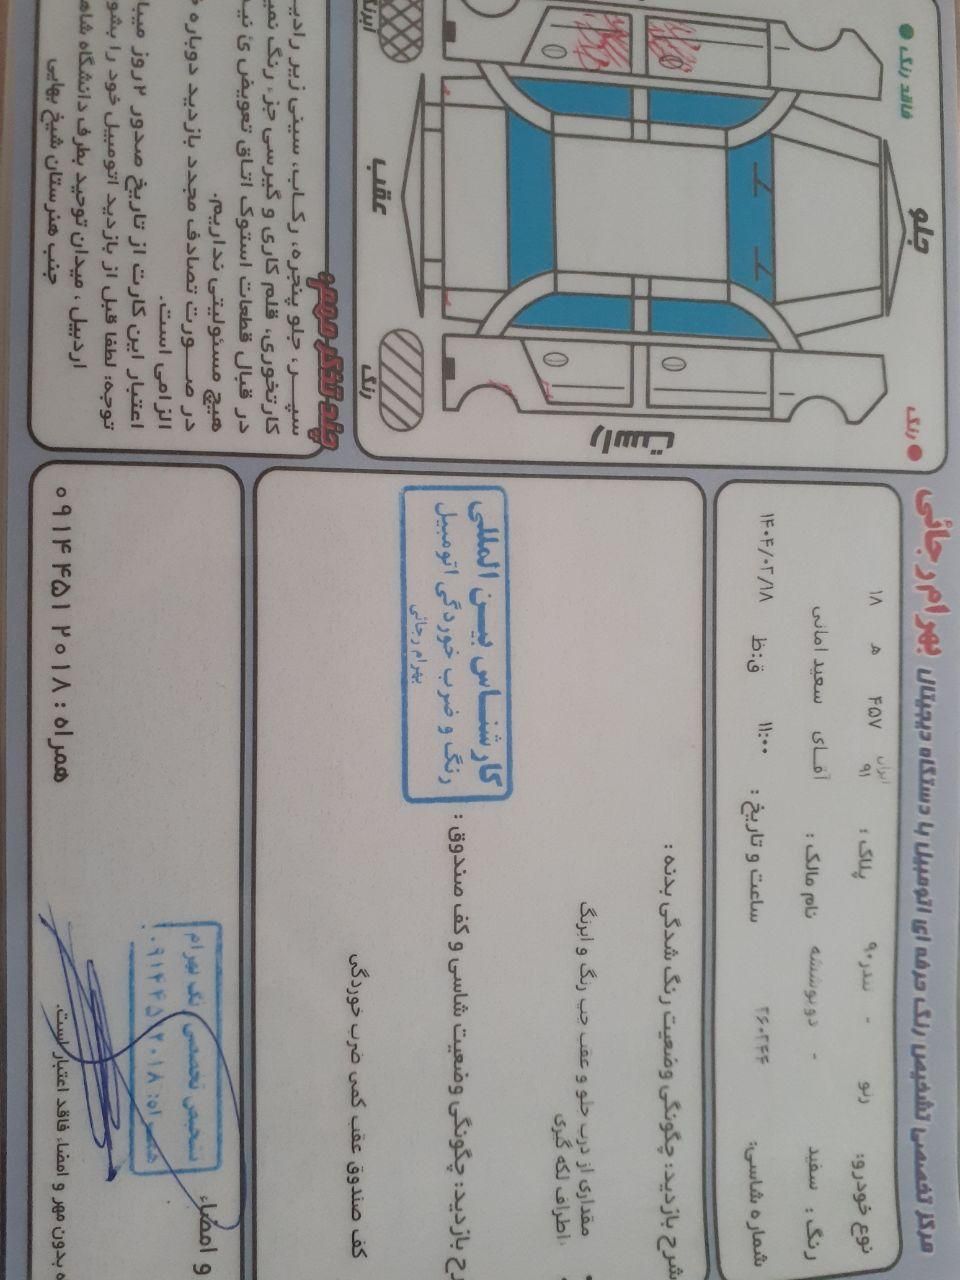 مرکز تخصصی تشخیص رنگ حرفه ای اتومبیل با دستگاه دیجیتال بهرام رجائی
نوع خودرو: رنو - تندر۹۰ پلاک: ایران ۹۱ ۴۵۷ ه ۱۸
رنگ: سفید - دوبوششه نام مالک: آقای سعید امانی
شماره شاسی: ساعت و تاریخ: ۱۱:۰۰ ق:ظ ۱۴۰۴/۰۲/۱۸
شرح بازدید: چگونگی وضعیت رنگ شدگی بدنه:
مقداری از درب جلو و عقب چپ رنگ و ابرنگ
اطراف لکه گیری
شرح بازدید: چگونگی وضعیت شاسی و کف صندوق:
کف صندوق عقب کمی ضرب خوردگی
کارشناس بین المللی
رنگ و ضرب خوردگی اتومبیل
بهرام رجائی
و امضاء
تشخیص تخصصی رنگ بهرام
همراه: ۰۹۱۴۴۵۱۲۰۱۸
بدون مهر و امضاء فاقد اعتبار است.
همراه: ۰۹۱۴ ۴۵۱ ۲۰۱۸
فاقد رنگ
رنگ
جلو
عقب
راست
رنگ
آبرنگ
چند تذکر مهم:
سپر، جلو پنجره، رکاب، سینی زیر
کارتخوری، قلم کاری و گیرسی جز، رنگ
در قبال قطعات استوک اتاق تعویض
هیچ مسئولیتی نداریم.
در صورت تصادف مجدد بازدید دوباره
الزامی است.
اعتبار این کارت از تاریخ صدور ۲ روز
توجه: لطفا قبل از بازدید اتومبیل خود را
اردبیل، میدان توحید بطرف دانشگاه
جنب هنرستان شیخ بهایی